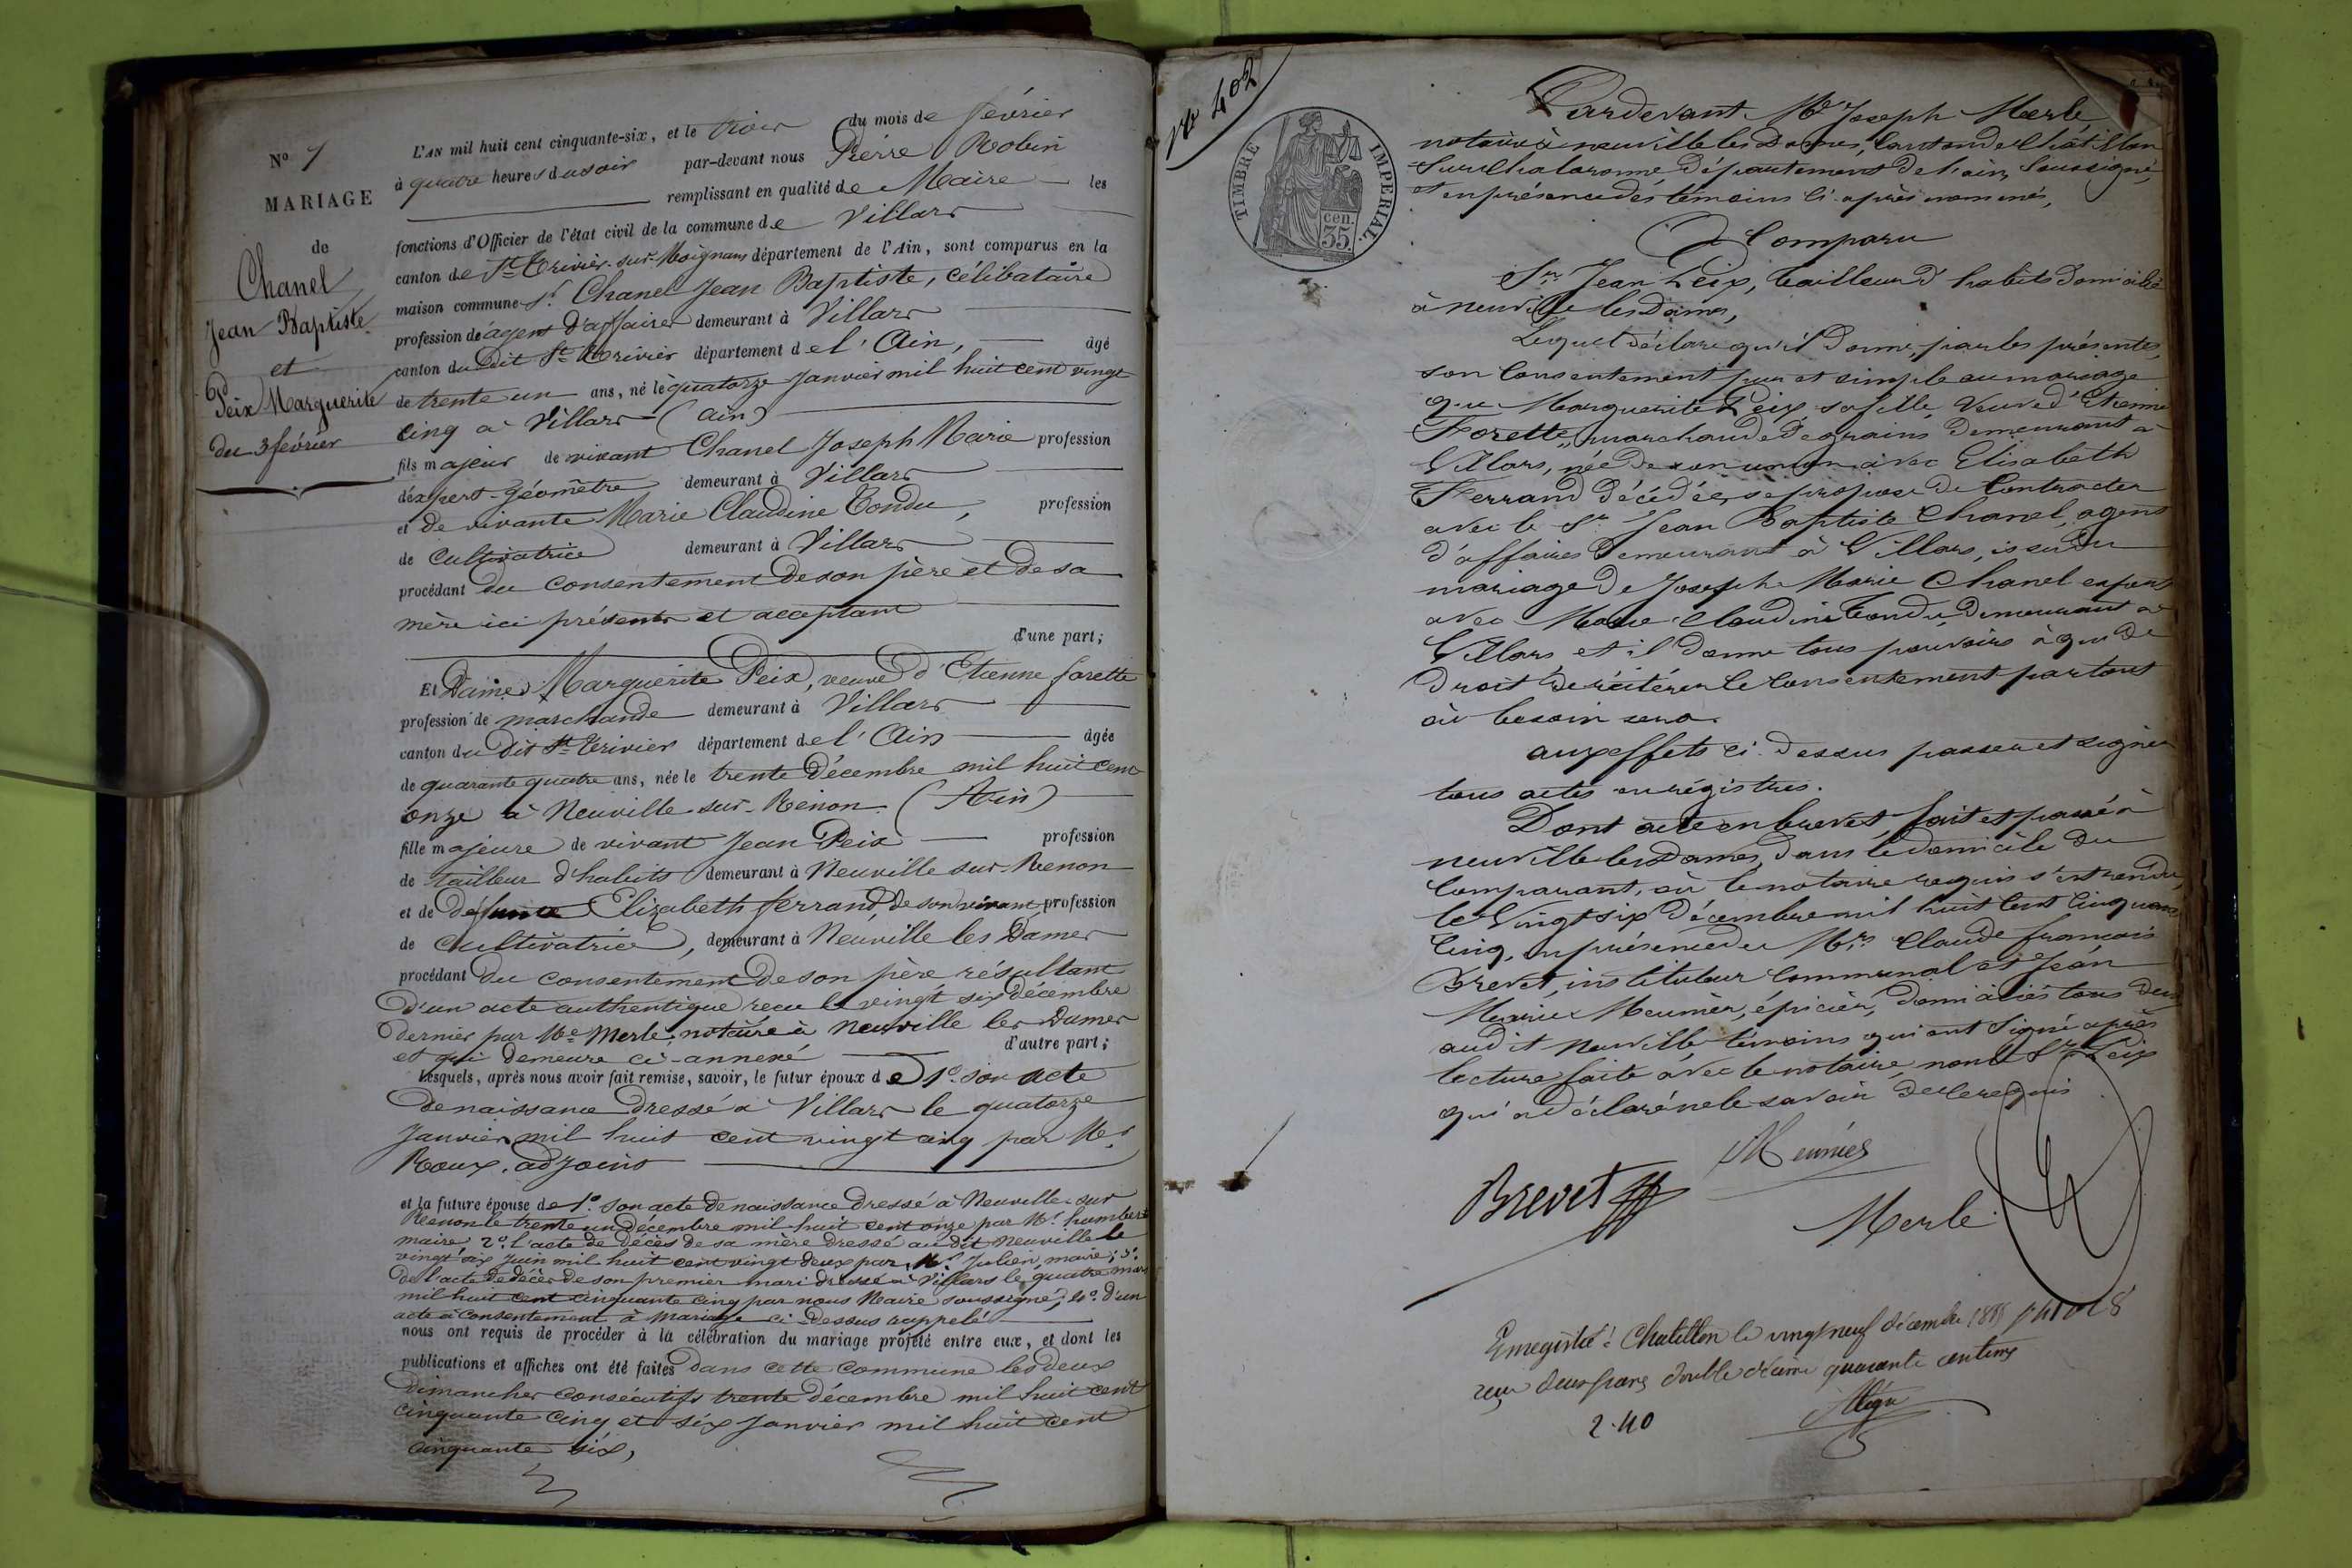 N° 7
MARIAGE
de
Chanel
Jean Baptiste
et
Peix Marguerite
du 3 février
L'AN mil huit cent cinquante-six, et le trois du mois de février
à quatre heures du soir par-devant nous Pierre Robin
remplissant en qualité de Maire les
fonctions d'Officier de l'état civil de la commune de Villars
canton de St Trivier-sur-Moignans département de l'Ain, sont comparus en la
maison commune Sr Chanel Jean Baptiste, célibataire
profession de agent d'affaires demeurant à Villars
canton du dit St Trivier département de l'Ain, âgé
de trente un ans, né le quatorze Janvier mil huit cent vingt
cinq à Villars (Ain)
fils majeur de vivant Chanel Joseph Marie profession
d'expert-géomètre demeurant à Villars
et de vivante Marie Claudine Tondu, profession
de cultivatrice demeurant à Villars
procédant du consentement de son père et de sa
mère ici présents et acceptant
d'une part;
Et Dame Marguerite Peix, veuve d'Etienne forette
profession de marchande demeurant à Villars
canton du dit St Trivier département de l'Ain âgée
de quarante quatre ans, née le trente Décembre mil huit cent
onze à Neuville-sur-Renon (Ain)
fille majeure de vivant Jean Peix profession
de tailleur d'habits demeurant à Neuville sur-Renon
et de défunte Elizabeth ferrand, de son vivant profession
de cultivatrice, demeurant à Neuville les Dames
procédant du consentement de son père résultant
d'un acte authentique reçu le vingt six Décembre
dernier par Me Merle, notaire à Neuville les Dames
et qui demeure ci-annexé d'autre part;
Lesquels, après nous avoir fait remise, savoir, le futur époux de 1° son acte
de naissance dressé à Villars le quatorze
Janvier mil huit cent vingt cinq par Mr
Roux, adjoint
et la future épouse de 1° son acte de naissance dressé à Neuville-sur
Renon le trente un décembre mil huit cent onze par Mr humbert
maire, 2° l'acte de décès de sa mère dressé au dit Neuville le
vingt six Juin mil huit cent vingt deux par Mr Julien, maire; 3°
de l'acte de décès de son premier mari dressé à Villars le quatre mars
mil huit cent cinquante cinq par nous Maire soussigné; 4° d'un
acte à consentement à Mariage ci-dessus rappelé
nous ont requis de procéder à la célébration du mariage projeté entre eux, et dont les
publications et affiches ont été faites dans cette commune les deux
dimanches consécutifs trente décembre mil huit cent
cinquante cinq et six Janvier mil huit cent
cinquante six,
N° 402
TIMBRE IMPERIAL
cen.
35
Pardevant Me Joseph Merle
notaire à neuville les Dames, Canton de Chatillon
Sur Chalaronne Département de l'ain, Soussigné,
et en présence des témoins ci-après nommés,
A Comparu
Sr Jean Peix, tailleur d'habits domicilié
à neuville les Dames,
Lequel déclare qu'il donne, par les présentes,
son Consentement pur et simple au mariage
que Marguerite Peix sa fille Veuve d'Etienne
Forette, marchande de grains demeurant à
Villars, née de son union avec Elisabeth
Ferrand décédée, se propose de Contracter
avec le Sr Jean Baptiste Chanel, agent
d'affaires Demeurant à Villars, issu du
mariage de Joseph-Marie Chanel expert
avec Marie Claudine Tondu demeurant à
Villars et il donne tous pouvoirs à qui de
Droit de réitérer le Consentement partout
où besoin sera.
aux effets ci-dessus passer et signer
tous actes ou régistres.
Dont acte en brevet, fait et passé à
neuville les Dames, dans le domicile du
Comparant, où le notaire requis s'est rendu,
le Vingt six Décembre mil huit Cent Cinquante
Cinq, en présence de Mrs Claude françois
Brevet, instituteur Communal et Jean
Marie Meunier, épicier, domiciliés tous deux
au dit Neuville témoins qui ont signé après
lecture faite avec le notaire, non le Sr Peix
qui a déclaré ne le savoir de ce requis
Meunier
Brevet
Merle
Enregistré à Chatillon le vingt neuf décembre 1855
reçu deux francs double décime quarante centimes
2.40